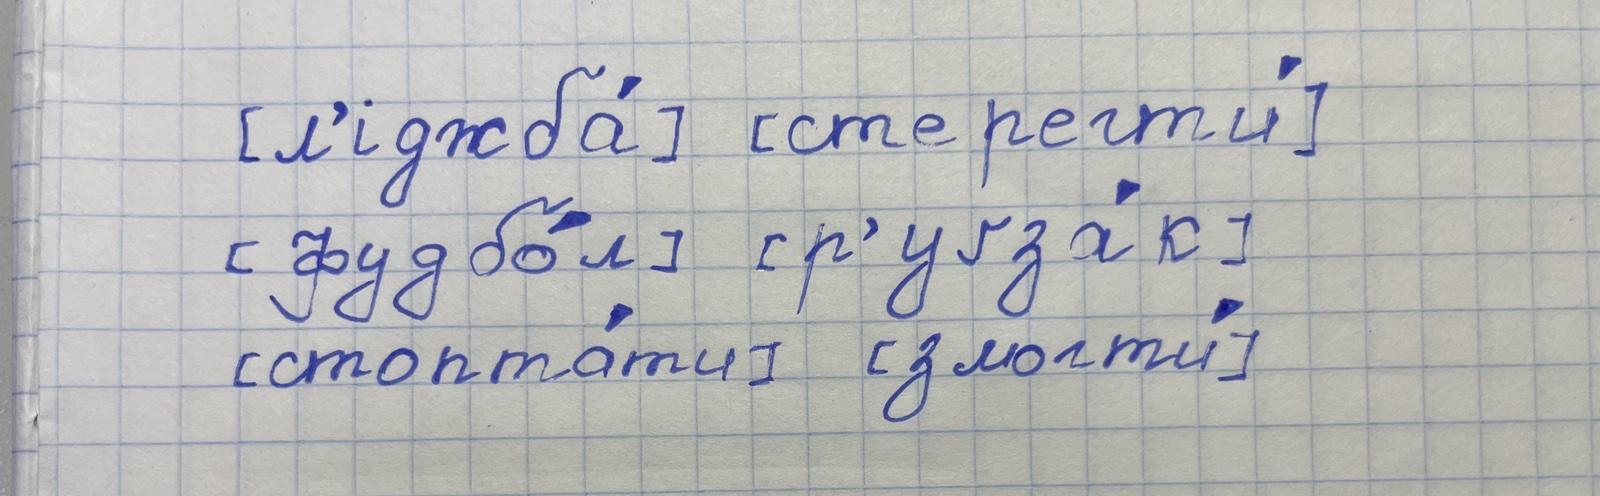 [л'іджба́] [стерегти́]
[фудбо́л] [р'уґза́к]
[стопта́ти] [змогти́]